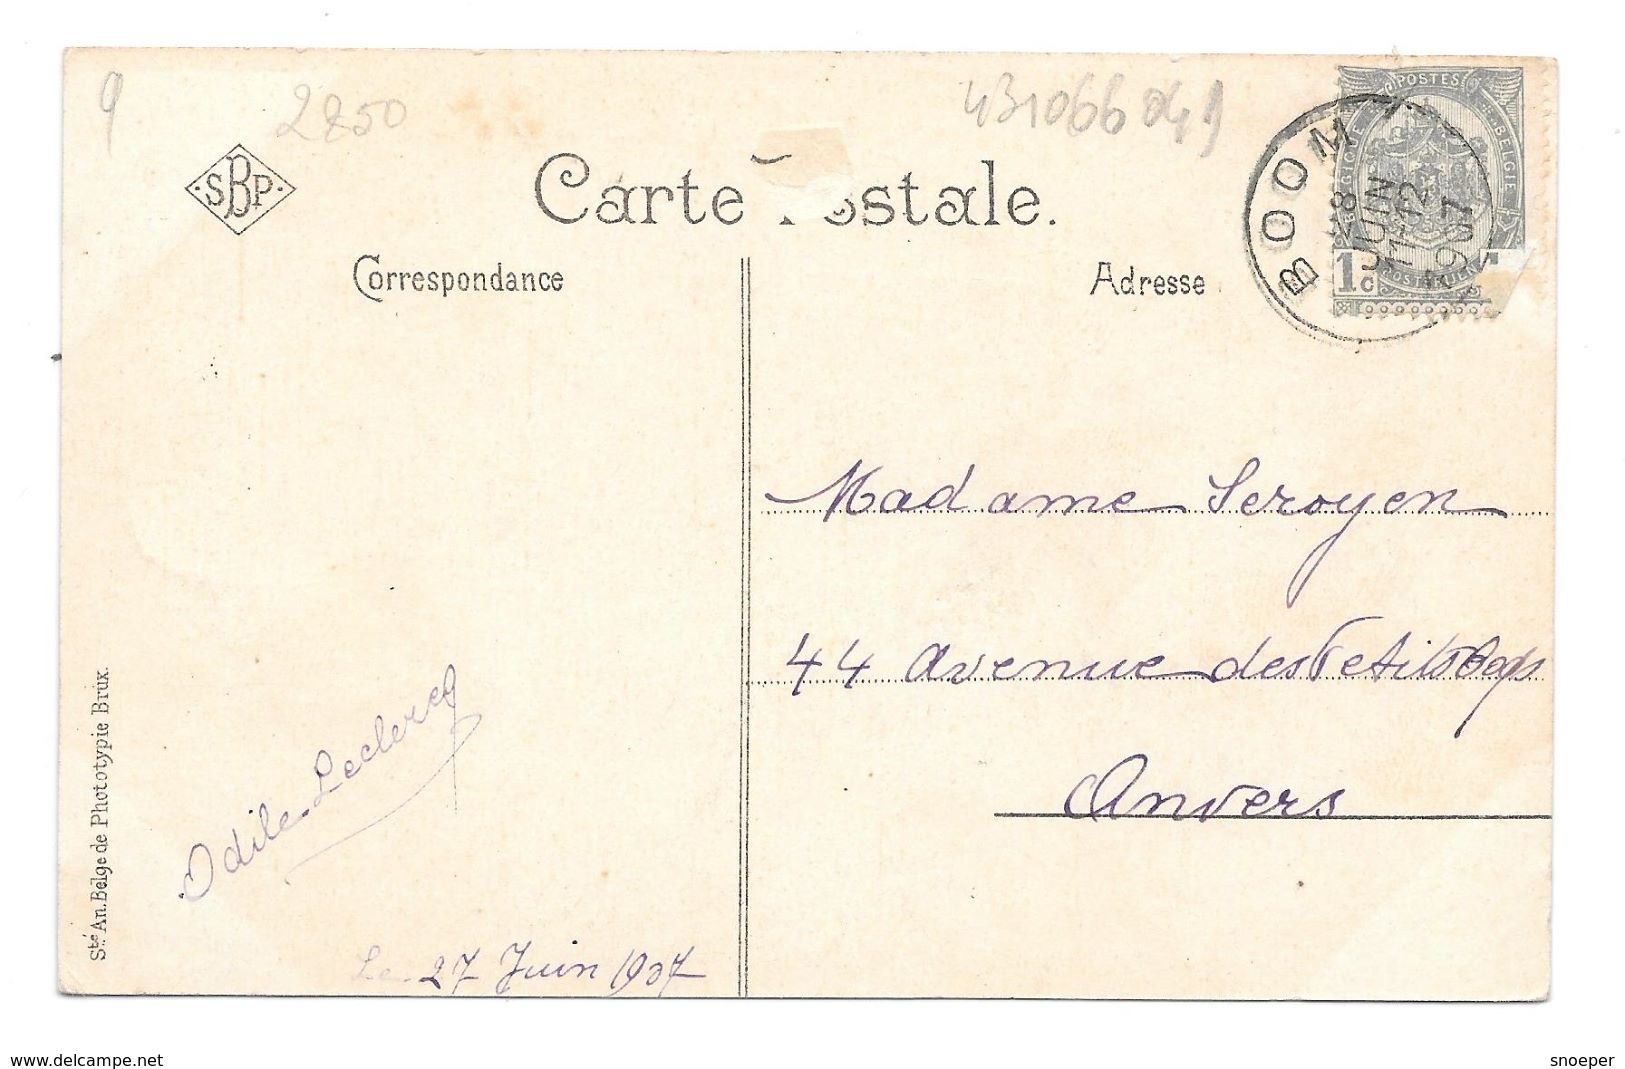 9
2850
43106604 9
SBP
Carte Postale.
Correspondance
Adresse
POSTES
BELGIQUE BELGIË
1c
POSTERIJEN
BOOM
28
JUIN
11-12
1907
Madame Seroyen
44 Avenue des Petits
Anvers
Odile Leclercq
Le 27 Juin 1907
Sté An. Belge de Phototypie Brux.
www.delcampe.net
snoeper